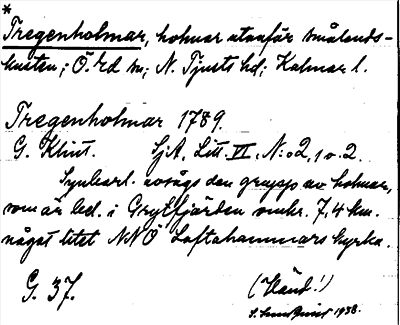 *
Tregenholmar, holmar utanför Smålands-
kusten; Ö. Ed sn; N. Tjusts hd; Kalmar l.
Tregenholmar 1789.
G. Klint. SjA. Litt. VI, N:o 2, 1 o. 2.
Synbarl. avsågs den grupp av holmar,
som är bel. i Grytfjärden omkr. 7,4 km.
något litet NNÖ Loftahammars kyrka.
G. 37. (Vänd!)
S. Lundqvist 1938.